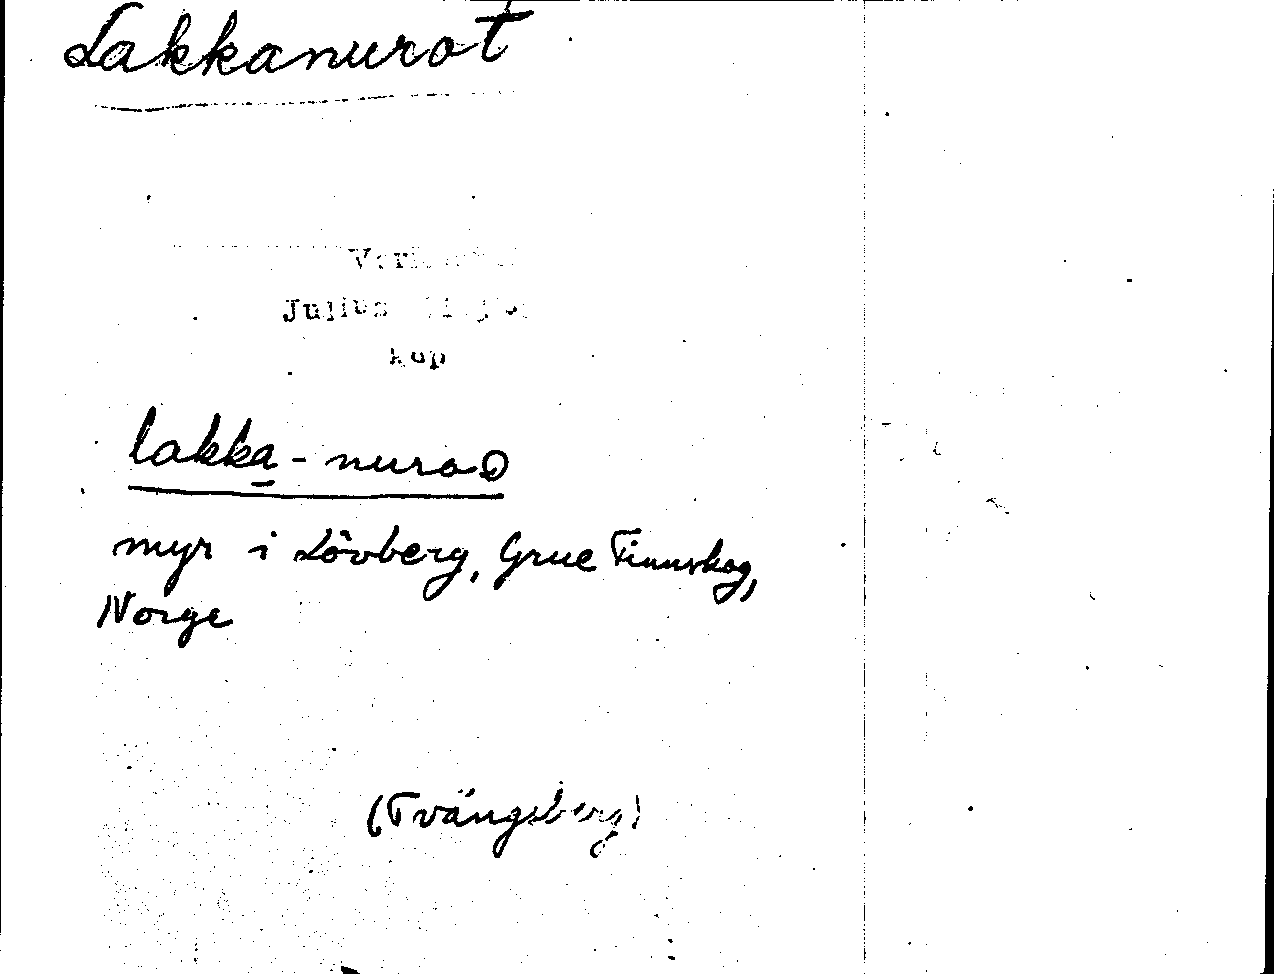 Lakkanurot
Julius
kop
lakka-nuroO
myr i Lövberg, Grue Finnskog,
Norge
(Tvängsberg)